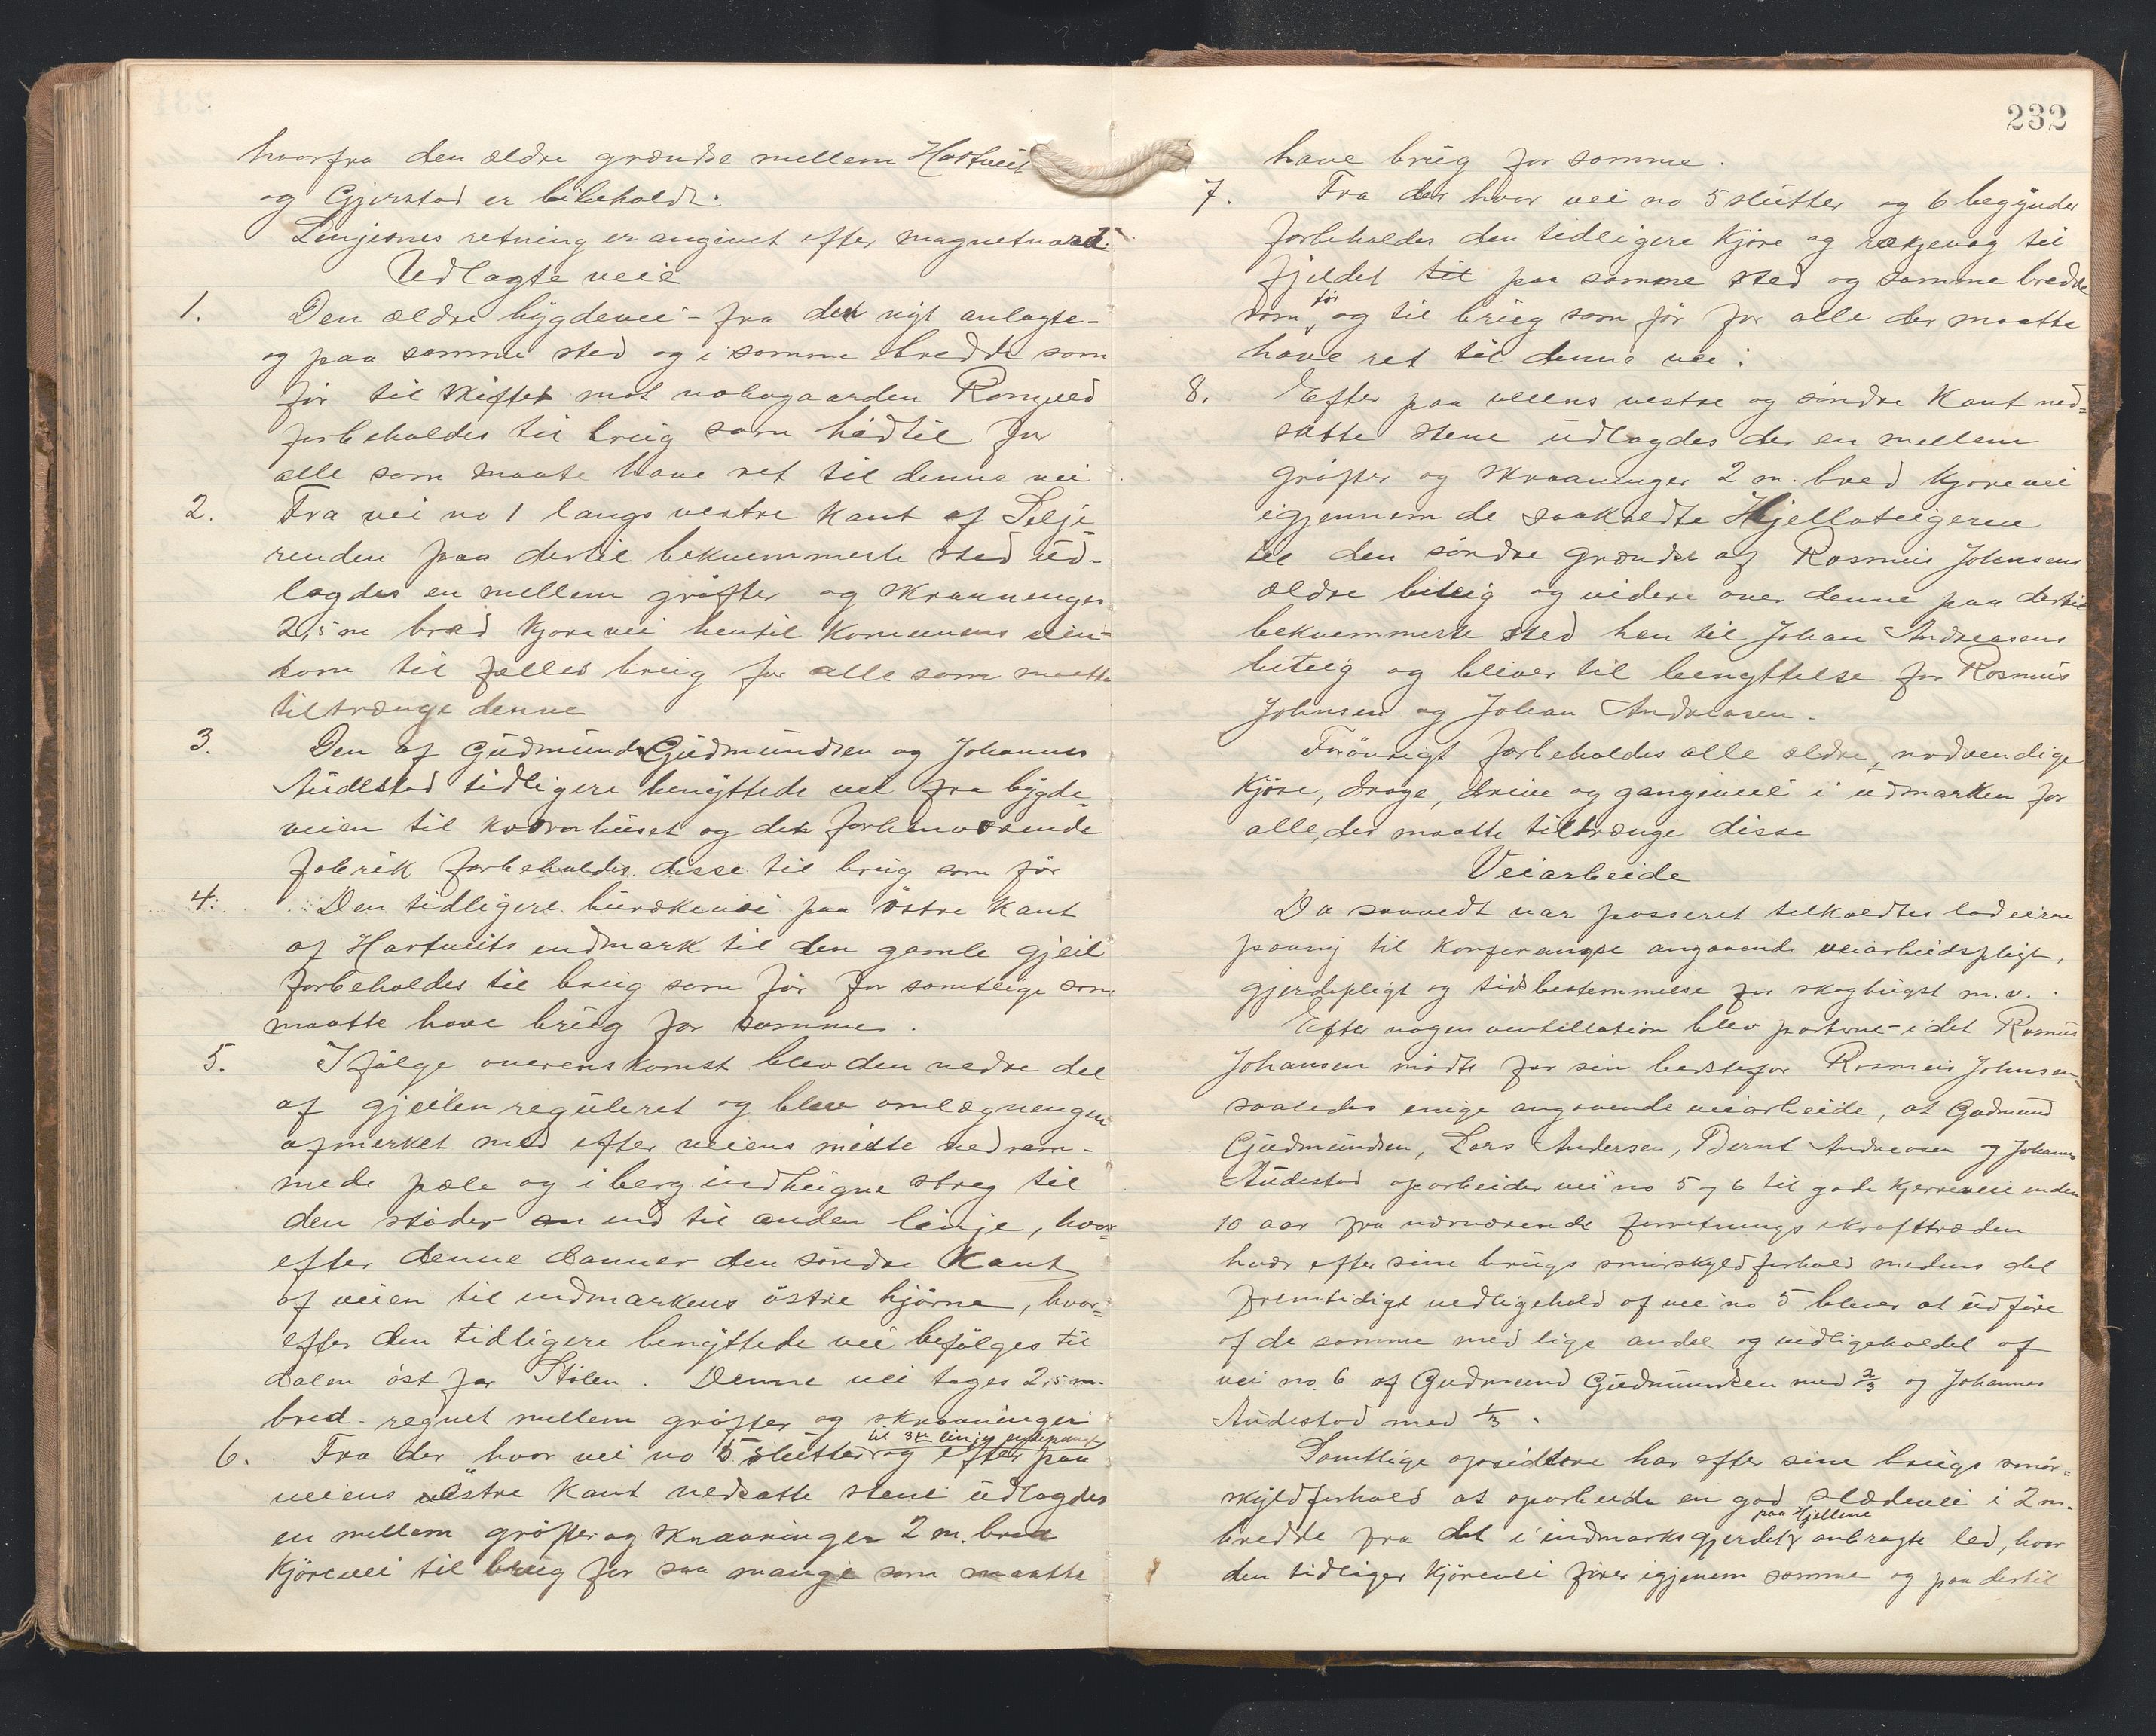 hvorfra den ældre grændse mellem Hartveit
og Gjerstad er bibeholdt.
Linjernes retning er angivet efter magnetnord.
Udlagte veie
1. Den ældre bygdevei - fra den nyt anlagte -
og paa samme sted og i samme bredde som
før til skiftet mot nabogaarden Romsved
forbeholdes til brug som hidtil for
alle som maatte have ret til denne vei
2. Fra vei no 1 langs vestre kant af Selje-
renden paa dertil bekvemmeste sted ud-
lagdes en mellem grøfter og skraaninger
2,5 m bred kjørevei hentil kommunens eien-
dom til fælles brug for alle som maatte
tiltrænge denne
3. Den af Gudmund Gudmundsen og Johannes
Audestad tidligere benyttede vei fra bygde-
veien til kværnhuset og den forhenværende
fabrik forbeholdes disse til brug som før
4. Den tidligere burækevei paa østre kant
af Hartveits indmark til den gamle gjeil
forbeholdes til brug som før for samtlige som
maatte have brug for samme.
5. Ifølge overenskomst blev den nedre del
af gjeilen reguleret og blev omlægningen
afmerket med efter veiens midte nedram-
mede pæle og i berg indhugne streg til
den støder an ind til anden linje, hvor-
efter denne danner den søndre kant
af veien til indmarkens østre hjørne, hvor-
efter den tidligere benyttede vei befølges til
dalen øst for Stølen. Denne vei tages 2,5 m.
bred - regnet mellem grøfter og skraaninger
til 3die linjes endepunkt
6. Fra der hvor vei no 5 slutter og efter paa
veiens østre kant nedsatte stene udlagdes
en mellem grøfter og skraaninger 2 m. bred
kjørevei til brug for saa mange som maatte
232
have brug for samme.
7. Fra der hvor vei no 5 slutter og 6 begynder
forbeholdes den tidligere kjøre og rækjevag til
fjeldet til paa samme sted og samme bredde
som før og til brug som før for alle der maatte
have ret til denne vei.
8. Efter paa veiens vestre og søndre kant ned-
satte stene udlagdes der en mellem
grøfter og skraaninger 2 m. bred kjørevei
igjennem de saakaldte Hjellateigerne
til den søndre grændse af Rasmus Johnsens
ældre biteig og videre over denne paa dertil
bekvemmeste sted hen til Johan Andreasens
biteig og bliver til benyttelse for Rasmus
Johnsen og Johan Andreasen.
Forøvrigt forbeholdes alle ældre, nødvendige
kjøre, drage, drive og gangeveie i udmarken for
alle, der maatte tiltrænge disse
Veiarbeide
Da saavidt var passeret tilkaldtes lodeierne
paany til konferanse angaaende veiarbeidspligt,
gjerdepligt og tidsbestemmelse for skoghugst m.v.
Efter nogen ventillation blev parterne - idet Rasmus
Johansen mødte for sin bedstefar Rasmus Johnsen -
saaledes enige angaaende veiarbeide, at Gudmund
Gudmundsen, Lars Andersen, Bernt Andreasen og Johannes
Audestad oparbeider vei no 5 og 6 til gode kjerreveie inden
10 aar fra nærværende forretnings ikrafttræden
hver efter sine brugs smørskyldforhold medens det
fremtidige vedligehold af vei no 5 bliver at udføre
af de samme med lige andel og vedligeholdet af
vei no. 6 af Gudmund Gudmundsen med 2/3 og Johannes
Audestad med 1/3.
Samtlige opsiddere har efter sine brugs smør-
skyldforhold at oparbeide en god slædevei i 2 m.
paa Hjellene
bredde fra det i indmarksgjerdet anbragte led, hvor
den tidliger kjørevei fører igjenem samme og paa dertil